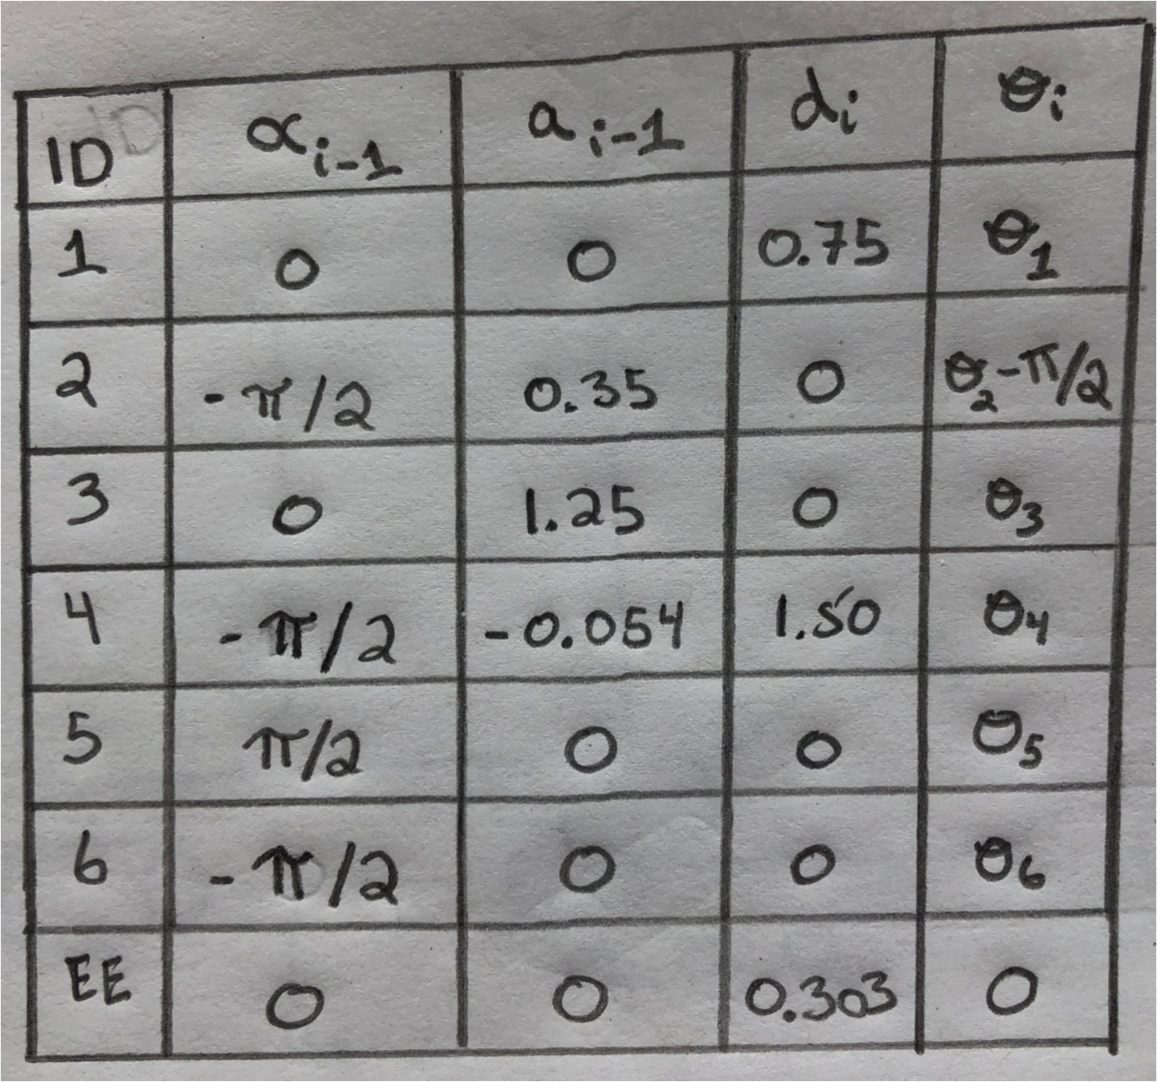 ID α i-1 a i-1 di θi
1 0 0 0.75 θ1
2 -π/2 0.35 0 θ2-π/2
3 0 1.25 0 θ3
4 -π/2 -0.054 1.50 θ4
5 π/2 0 0 θ5
6 -π/2 0 0 θ6
EE 0 0 0.303 0